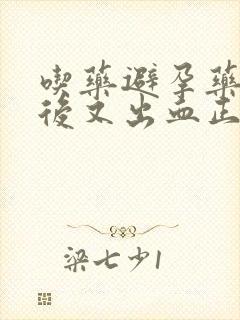 喫藥避孕藥
後又出血正
梁七少1